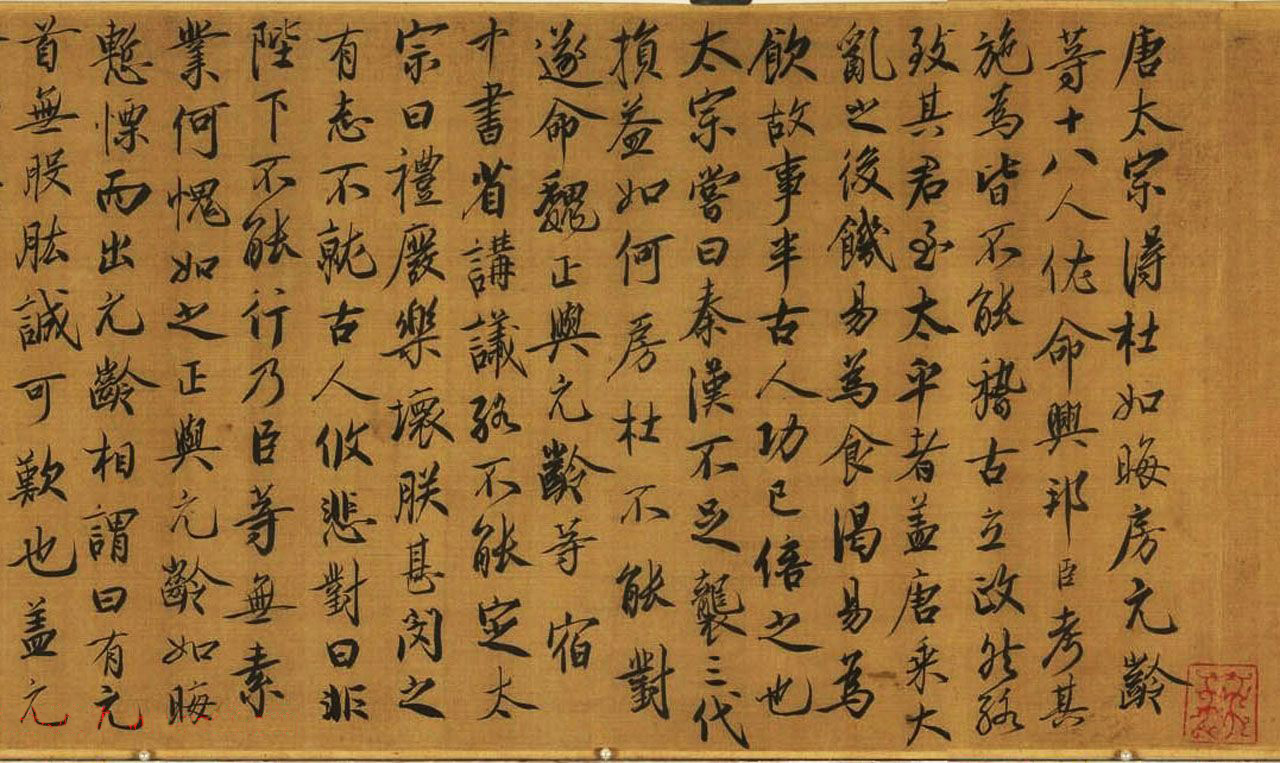 唐太宗得杜如晦房元齡
等十八人佐命興邦臣考其
施為皆不能稽古立政然終
致其君至太平者盖唐乘大
亂之後饑易為食渴易為
飲故事半古人功已倍之也
太宗嘗曰秦漢不足襲三代
損益如何房杜不能對
遂命魏正與元齡等宿
中書省講議終不能定太
宗曰禮廢樂壞朕甚閔之
有志不就古人攸悲對曰非
陛下不能行乃臣等無素
業何愧如之正與元齡如晦
慙慄而出元齡相謂曰有元
首無股肱誠可歎也盖元